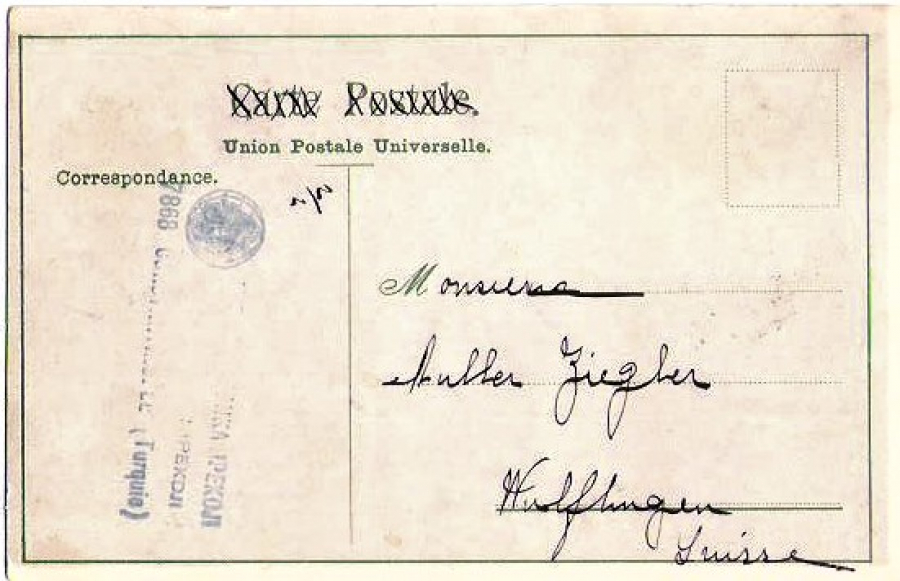 Carte Postale.
Union Postale Universelle.
Correspondance.
Monsieur
Muller Ziegler
Wulflingen
Suisse
7868
(Turquie)